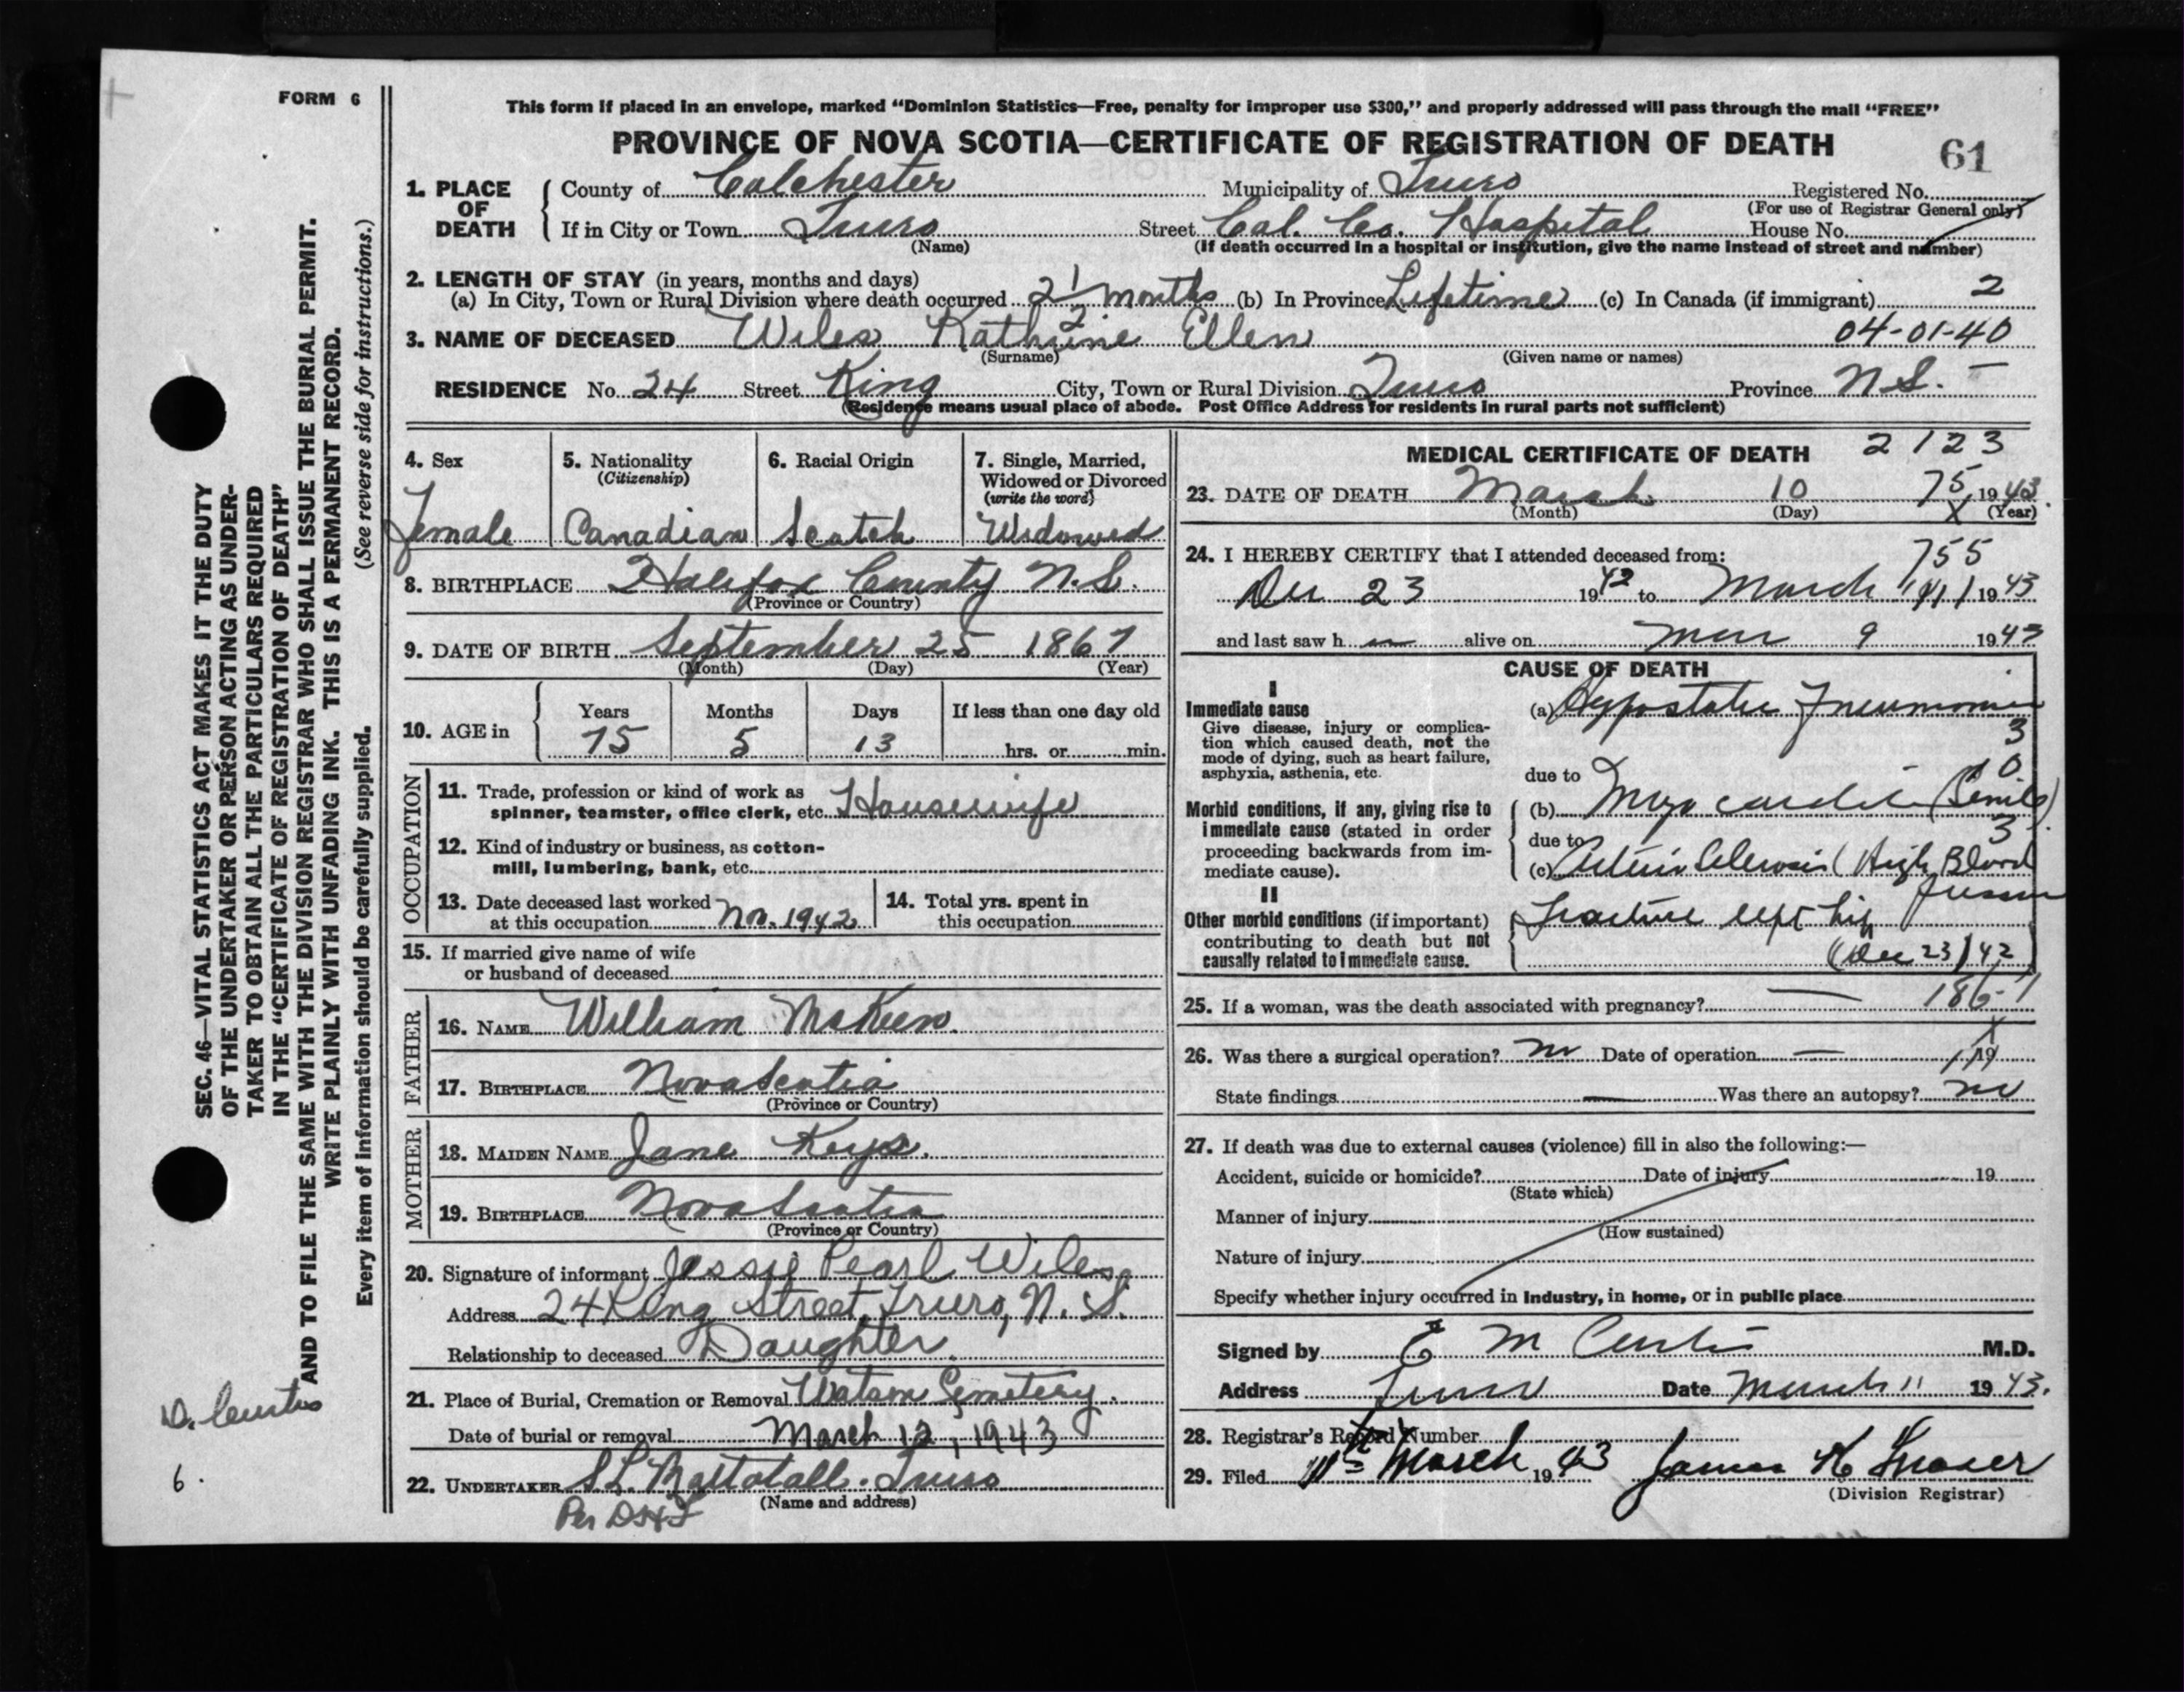 FORM 6
This form if placed in an envelope, marked “Dominion Statistics—Free, penalty for improper use $300,” and properly addressed will pass through the mail “FREE”
PROVINCE OF NOVA SCOTIA—CERTIFICATE OF REGISTRATION OF DEATH
61
1. PLACE OF DEATH
County of Colchester Municipality of Truro Registered No.
(For use of Registrar General only)
If in City or Town Truro Street Col. Co. Hospital House No.
(Name) (If death occurred in a hospital or institution, give the name instead of street and number)
2. LENGTH OF STAY (in years, months and days)
(a) In City, Town or Rural Division where death occurred 2 1/2 months (b) In Province Lifetime (c) In Canada (if immigrant) 2
3. NAME OF DECEASED Wiles Kathrine Ellen 04-01-40
(Surname) (Given name or names)
RESIDENCE No. 24 Street King City, Town or Rural Division Truro Province N.S. —
(Residence means usual place of abode. Post Office Address for residents in rural parts not sufficient)
4. Sex
Female
5. Nationality
(Citizenship)
Canadian
6. Racial Origin
Scotch
7. Single, Married,
Widowed or Divorced
(write the word)
Widowed
8. BIRTHPLACE Halifax County N.S.
(Province or Country)
9. DATE OF BIRTH September 25 1867
(Month) (Day) (Year)
10. AGE in
Years Months Days If less than one day old
75 5 13 hrs. or min.
OCCUPATION
11. Trade, profession or kind of work as
spinner, teamster, office clerk, etc. Housewife
12. Kind of industry or business, as cotton-
mill, lumbering, bank, etc.
13. Date deceased last worked
at this occupation Nov. 1942
14. Total yrs. spent in
this occupation
15. If married give name of wife
or husband of deceased
FATHER
16. NAME William McKeen
17. BIRTHPLACE Nova Scotia
(Province or Country)
MOTHER
18. MAIDEN NAME Jane Keys.
19. BIRTHPLACE Nova Scotia
(Province or Country)
20. Signature of informant Jessie Pearl Wiles
Address 24 King Street, Truro, N.S.
Relationship to deceased Daughter
21. Place of Burial, Cremation or Removal Watson Semetery.
Date of burial or removal March 12, 1943
22. UNDERTAKER Truro
(Name and address)
Per
MEDICAL CERTIFICATE OF DEATH 2123
23. DATE OF DEATH March 10 75, 1943
(Month) (Day) X (Year)
24. I HEREBY CERTIFY that I attended deceased from: 755
Dec 23 1942 to March 1943
and last saw h er alive on Mar 9 1943
CAUSE OF DEATH
I
Immediate cause
Give disease, injury or complica-
tion which caused death, not the
mode of dying, such as heart failure,
asphyxia, asthenia, etc.
(a) Hypostatic Pneumonia
3
due to
10
Morbid conditions, if any, giving rise to
immediate cause (stated in order
proceeding backwards from im-
mediate cause).
(b) Myocarditis (Senile)
3
due to
(c) Arterio Sclerosis (High Blood
Pressure
II
Other morbid conditions (if important)
contributing to death but not
causally related to immediate cause.
Fracture left hip
(Dec 23) 42
25. If a woman, was the death associated with pregnancy? —
26. Was there a surgical operation? no Date of operation — 19
State findings — Was there an autopsy? no
27. If death was due to external causes (violence) fill in also the following:—
Accident, suicide or homicide? Date of injury 19
(State which)
Manner of injury
(How sustained)
Nature of injury
Specify whether injury occurred in industry, in home, or in public place
Signed by E M Curtis M.D.
Address Truro Date March 11 1943.
28. Registrar's Record Number
29. Filed 11th March 1943 James
(Division Registrar)
SEC. 46—VITAL STATISTICS ACT MAKES IT THE DUTY
OF THE UNDERTAKER OR PERSON ACTING AS UNDER-
TAKER TO OBTAIN ALL THE PARTICULARS REQUIRED
IN THE “CERTIFICATE OF REGISTRATION OF DEATH”
AND TO FILE THE SAME WITH THE DIVISION REGISTRAR WHO SHALL ISSUE THE BURIAL PERMIT.
WRITE PLAINLY WITH UNFADING INK. THIS IS A PERMANENT RECORD.
Every item of information should be carefully supplied. (See reverse side for instructions.)
D. Curtis
6.